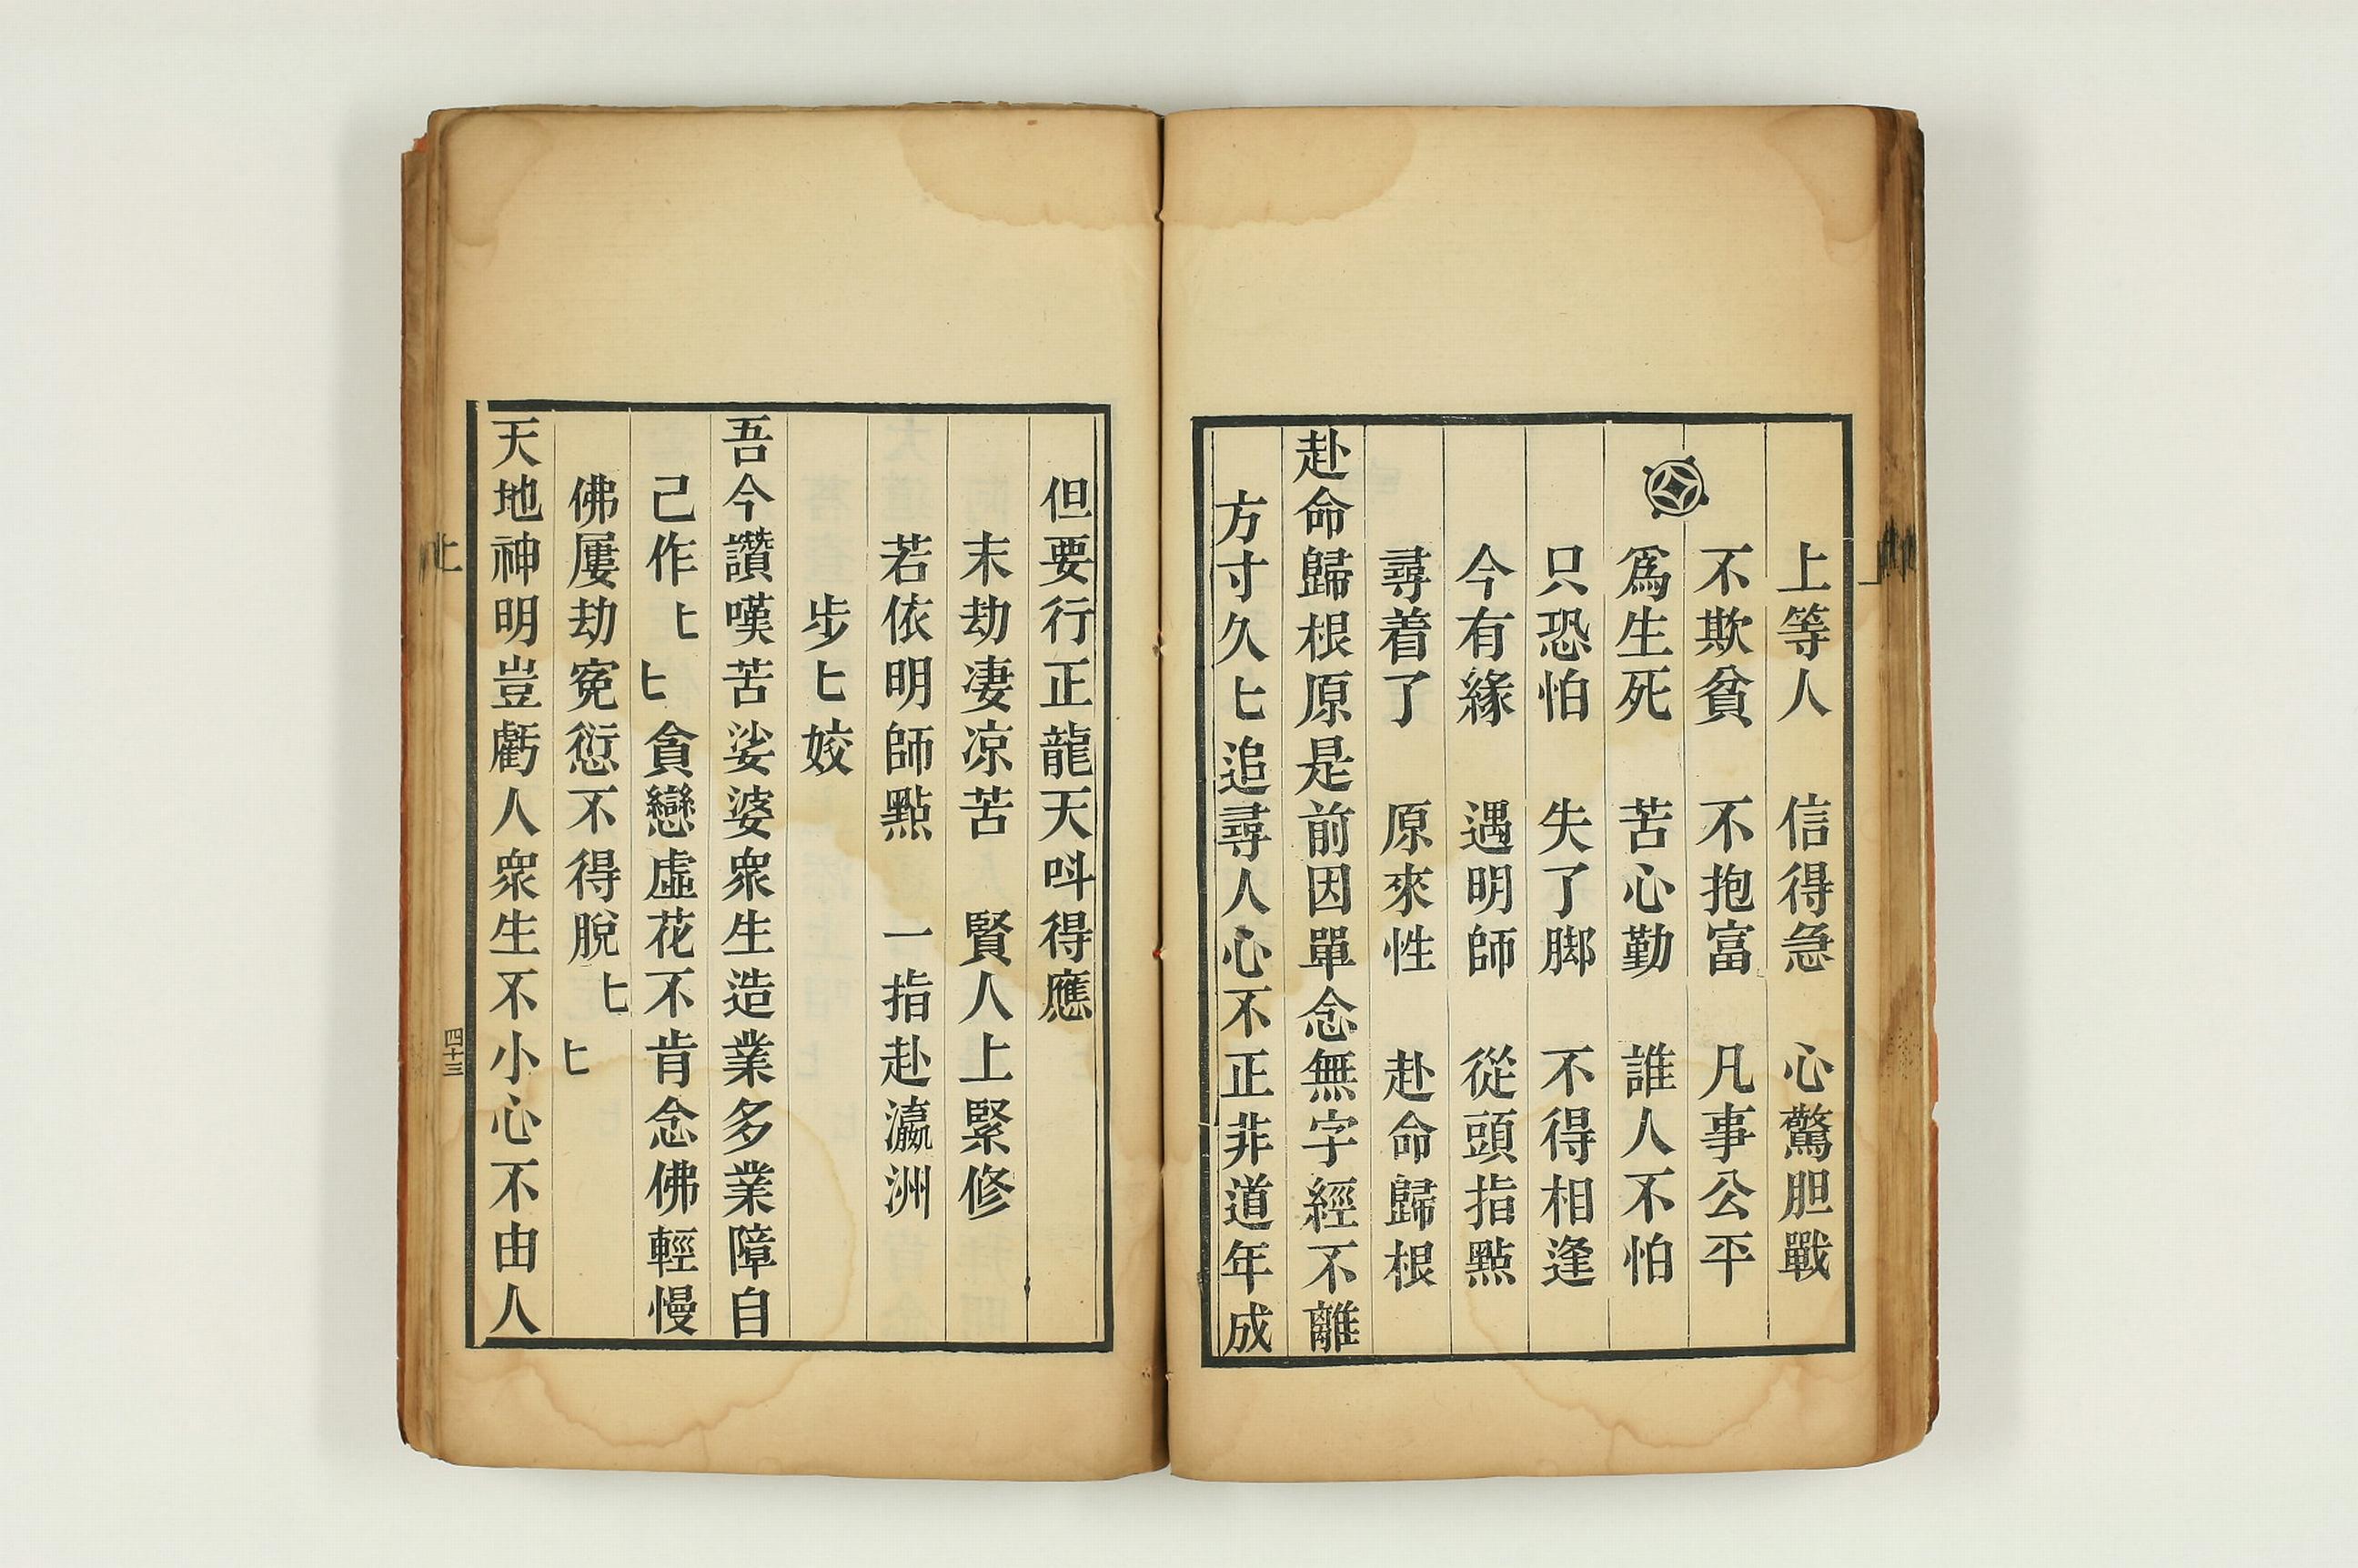 上等人　信得急　心驚胆戰
不欺貧　不抱富　凡事公平
爲生死　苦心勤　誰人不怕
只恐怕　失了脚　不得相逢
今有緣　遇明師　從頭指點
尋着了　原來性　赴命歸根
赴命歸根原是前因單念無字經不離
方寸久匕追尋人心不正非道年成
但要行正龍天呌得應
末劫凄凉苦　賢人上緊修
若依明師點　一指赴瀛洲
步匕姣
吾今讚嘆苦娑婆衆生造業多業障自
己作匕匕貪戀虛花不肯念佛輕慢
佛屢劫寃愆不得脫匕匕
天地神明豈虧人衆生不小心不由人
上
四十三